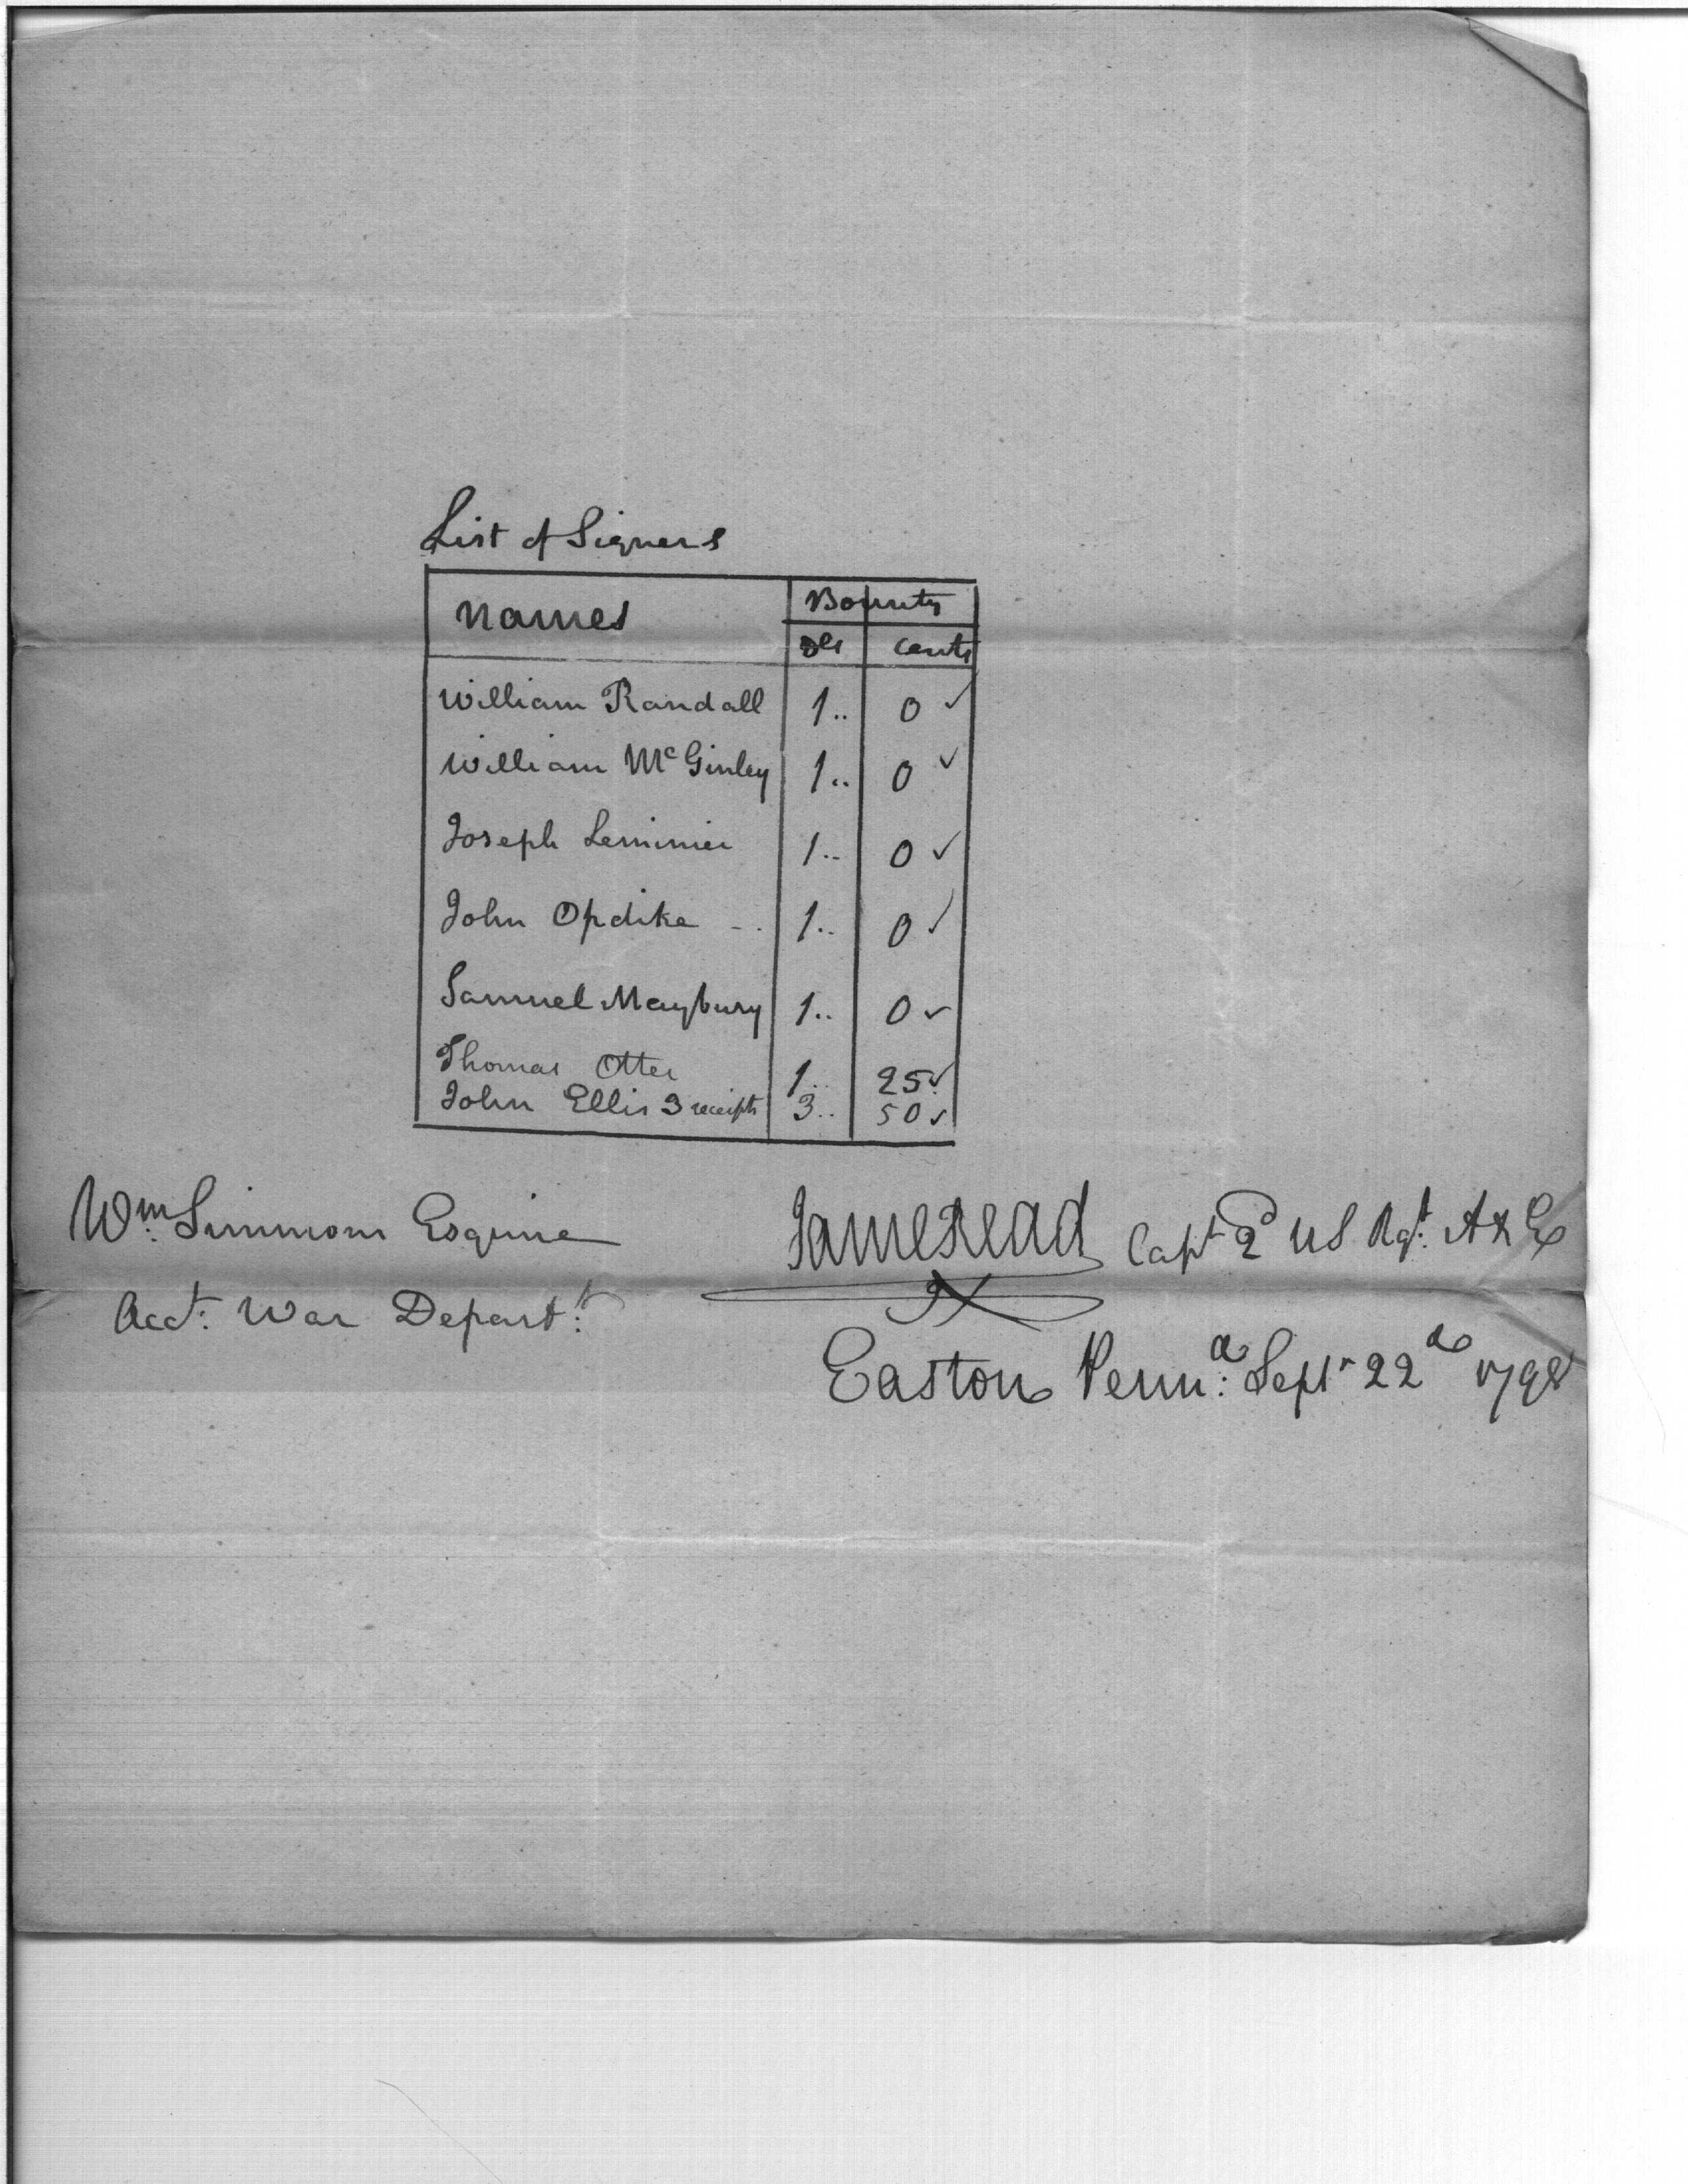 List of Signers
Names Bounty
Dls Cents
William Randall 1.. 0 ✓
William McGinley 1.. 0 ✓
Joseph Lemmier 1.. 0 ✓
John Opdike - . 1.. 0 ✓
Samuel Maybury 1.. 0 ✓
Thomas Otter 1.. 25 ✓
John Ellis 3 receipts 3.. 50 ✓
Wm. Simmons Esquire
Acct. War Depart.t
James Read Capt 2d US Rgt. A & E
Easton Penna. Sept 22d 1798